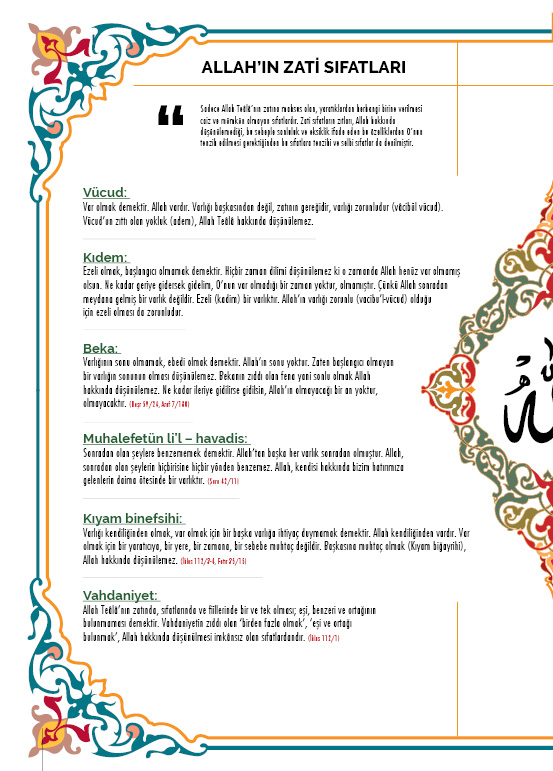 ALLAH'IN ZATİ SIFATLARI
“
Sadece Allah Teâlâ'nın zatına mahsus olan, yaratıklardan herhangi birine verilmesi
caiz ve mümkün olmayan sıfatlardır. Zati sıfatların zıtları, Allah hakkında
düşünülemediği, bu sebeple sonluluk ve eksiklik ifade eden bu özelliklerden O'nun
tenzih edilmesi gerektiğinden bu sıfatlara tenzihi ve selbi sıfatlar da denilmiştir.
Vücud:
Var olmak demektir. Allah vardır. Varlığı başkasından değil, zatının gereğidir, varlığı zorunludur (vâcibül vücud).
Vücud'un zıttı olan yokluk (adem), Allah Teâlâ hakkında düşünülemez.
Kıdem:
Ezeli olmak, başlangıcı olmamak demektir. Hiçbir zaman dilimi düşünülemez ki o zamanda Allah henüz var olmamış
olsun. Ne kadar geriye gidersek gidelim, O'nun var olmadığı bir zaman yoktur, olmamıştır. Çünkü Allah sonradan
meydana gelmiş bir varlık değildir. Ezeli (kadim) bir varlıktır. Allah'ın varlığı zorunlu (vacibu'l-vücud) olduğu
için ezeli olması da zorunludur.
Beka:
Varlığının sonu olmamak, ebedi olmak demektir. Allah'ın sonu yoktur. Zaten başlangıcı olmayan
bir varlığın sonunun olması düşünülemez. Bekanın zıddı olan fena yani sonlu olmak Allah
hakkında düşünülemez. Ne kadar ileriye gidilirse gidilsin, Allah'ın olmayacağı bir an yoktur,
olmayacaktır. (Haşr 59/24, Araf 7/180)
Muhalefetün li'l – havadis:
Sonradan olan şeylere benzememek demektir. Allah'tan başka her varlık sonradan olmuştur. Allah,
sonradan olan şeylerin hiçbirisine hiçbir yönden benzemez. Allah, kendisi hakkında bizim hatırımıza
gelenlerin daima ötesinde bir varlıktır. (Şura 42/11)
Kıyam binefsihi:
Varlığı kendiliğinden olmak, var olmak için bir başka varlığa ihtiyaç duymamak demektir. Allah kendiliğinden vardır. Var
olmak için bir yaratıcıya, bir yere, bir zamana, bir sebebe muhtaç değildir. Başkasına muhtaç olmak (Kıyam biğayrihi),
Allah hakkında düşünülemez. (İhlas 112/2-4, Fatır 25/15)
Vahdaniyet:
Allah Teâlâ'nın zatında, sıfatlarında ve fiillerinde bir ve tek olması; eşi, benzeri ve ortağının
bulunmaması demektir. Vahdaniyetin zıddı olan 'birden fazla olmak', 'eşi ve ortağı
bulunmak', Allah hakkında düşünülmesi imkânsız olan sıfatlardandır. (İhlas 112/1)